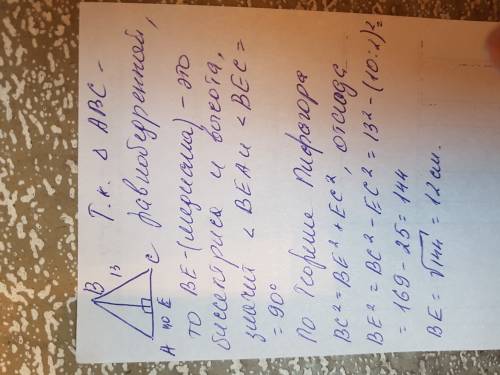 B
13
A 10 E C
Т.к. Δ ABC -
равнобедренный,
то BE-(медиана) - это
биссектриса и высота,
значит < BEA и < BEC =
= 90°
По Теореме Пифагора
BC² = BE² + EC², отсюда
BE² = BC² - EC² = 13² - (10:2)² =
= 169 - 25 = 144
BE = √144 = 12 см.